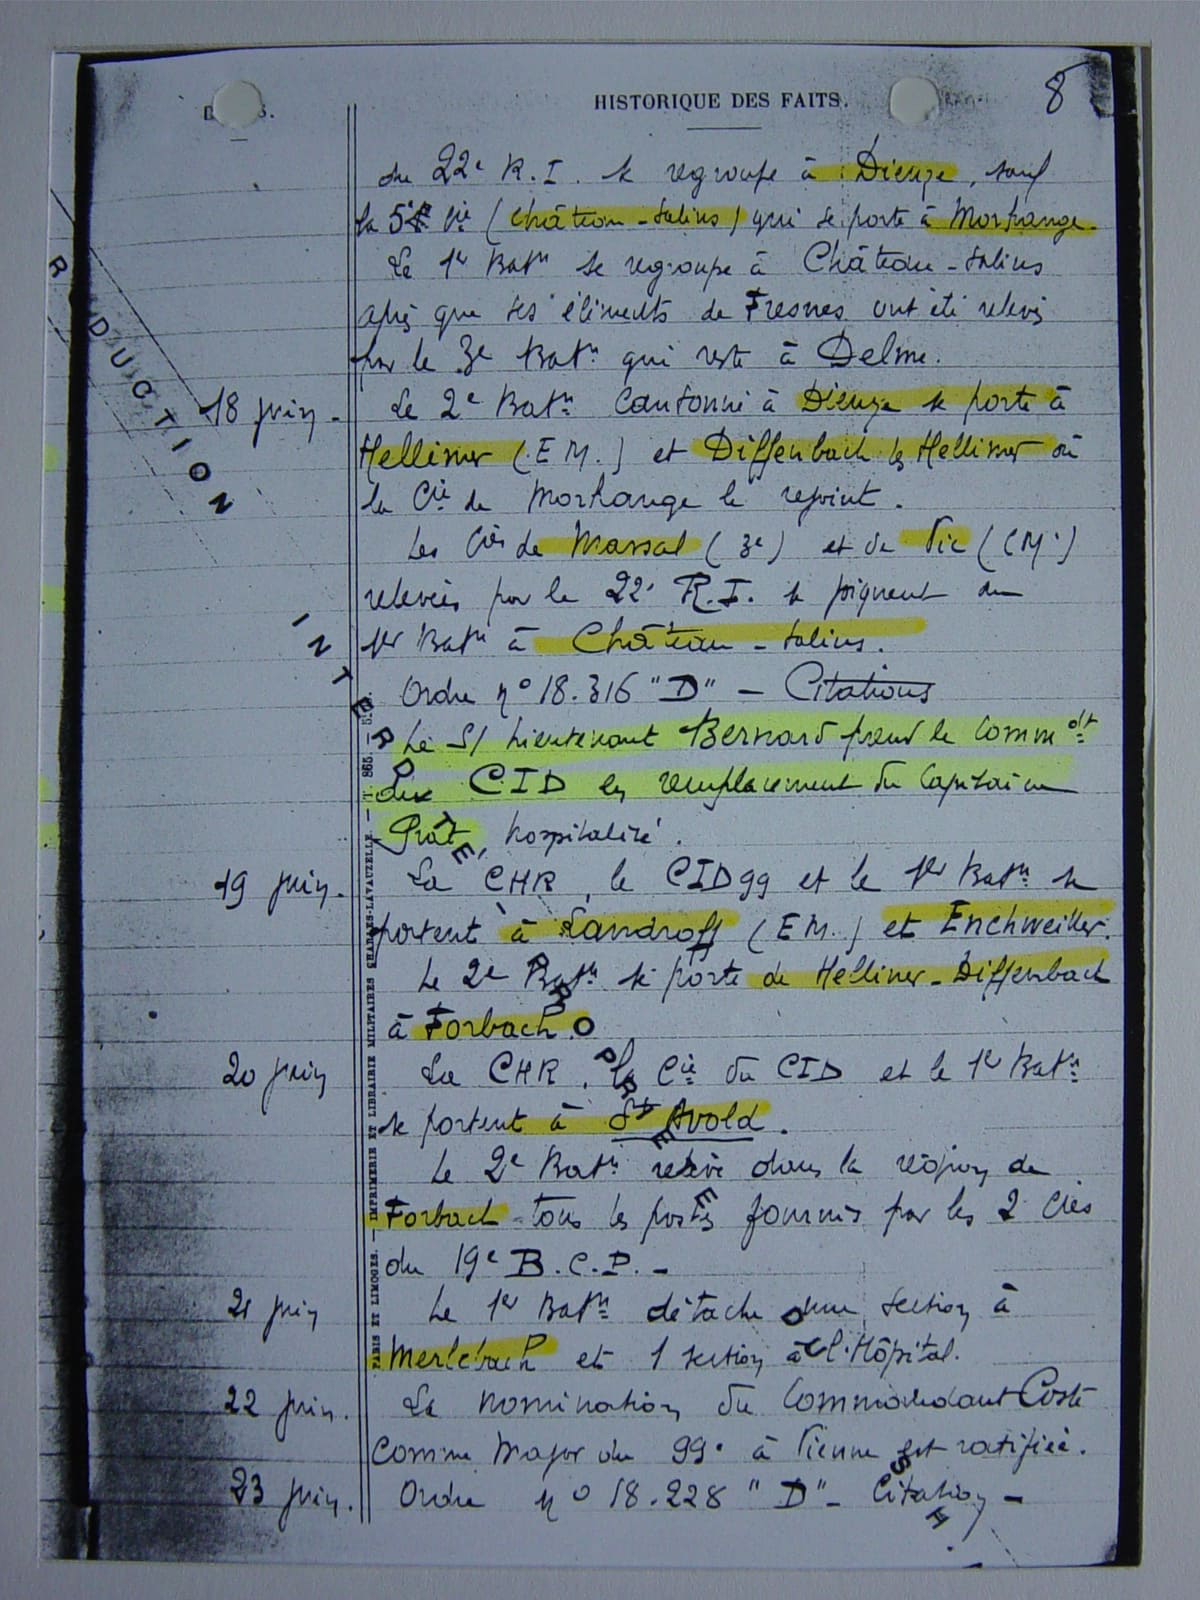 HISTORIQUE DES FAITS.
8
du 22e R.I. se regroupe à Dieuze, sauf
la 5e Cie (Château-Salins) qui se porte à Morhange.
Le 1er Batn se regroupe à Château-Salins
après que ses éléments de Fresnes ont été relevés
par le 3e Batn qui reste à Delme.
18 juin - Le 2e Batn cantonné à Dieuze se porte à
Hellimer (E M.) et Diffenbach les Hellimer où
la Cie de Morhange le rejoint.
Les Cies de Marsal (3e) et de Vic (CM1)
relevées par le 22e R.I. se joignent au
1er Batn à Château-Salins.
Ordre no 18.316 "D" - Citations
Le S/ Lieutenant Bernard prend le Commdt
du CID en remplacement du Capitaine
Prat, hospitalisé.
19 juin. La CHR, le CID 99 et le 1er Batn se
portent à Landroff (E M.) et Enchweiller.
Le 2e Batn se porte de Hellimer-Diffenbach
à Forbach.
20 juin La CHR, la Cie du CID et le 1er Batn
se portent à St Avold.
Le 2e Batn relève dans la région de
Forbach tous les postes fournis par les 2 Cies
du 19e B.C.P. -
21 juin Le 1er Batn détache une section à
Merlebach et 1 section à l'Hôpital.
22 juin. La nomination du Commandant Coste
comme Major du 99e à Vienne est ratifiée.
23 juin. Ordre no 18.228 "D" - Citation -
PARIS ET LIMOGES. — IMPRIMERIE ET LIBRAIRIE MILITAIRES CHARLES-LAVAUZELLE. — T. 865